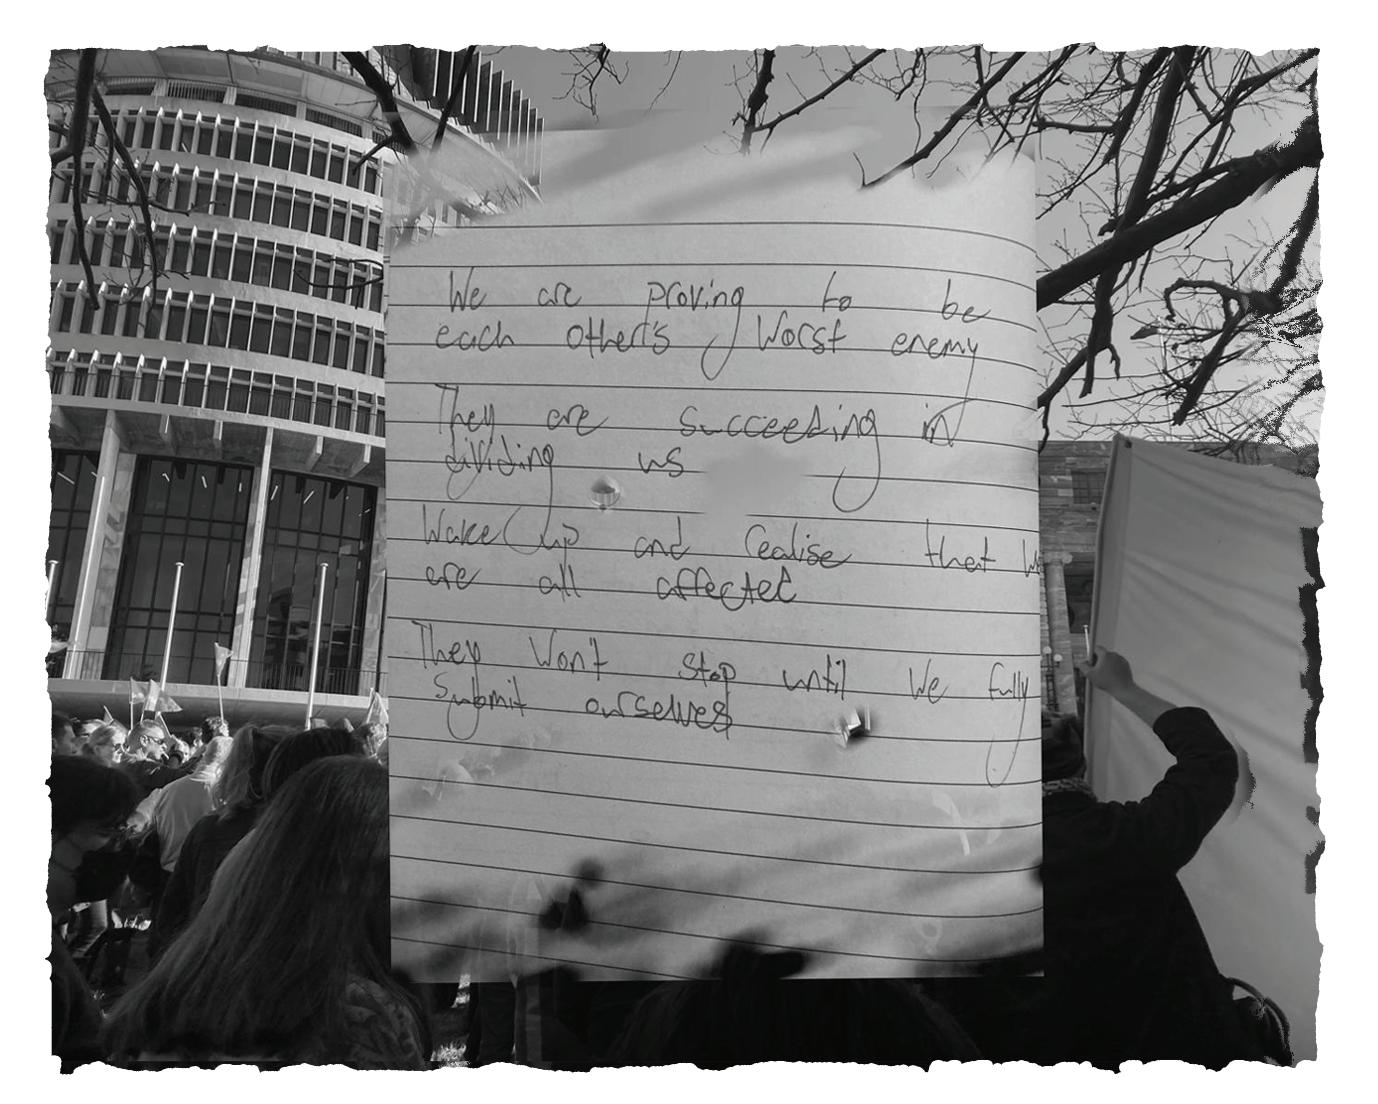 We are proving to be
each other's worst enemy
They are succeeding in
dividing us
Wake up and realise that we
are all affected
They Won't Stop until We fully
Submit ourselves